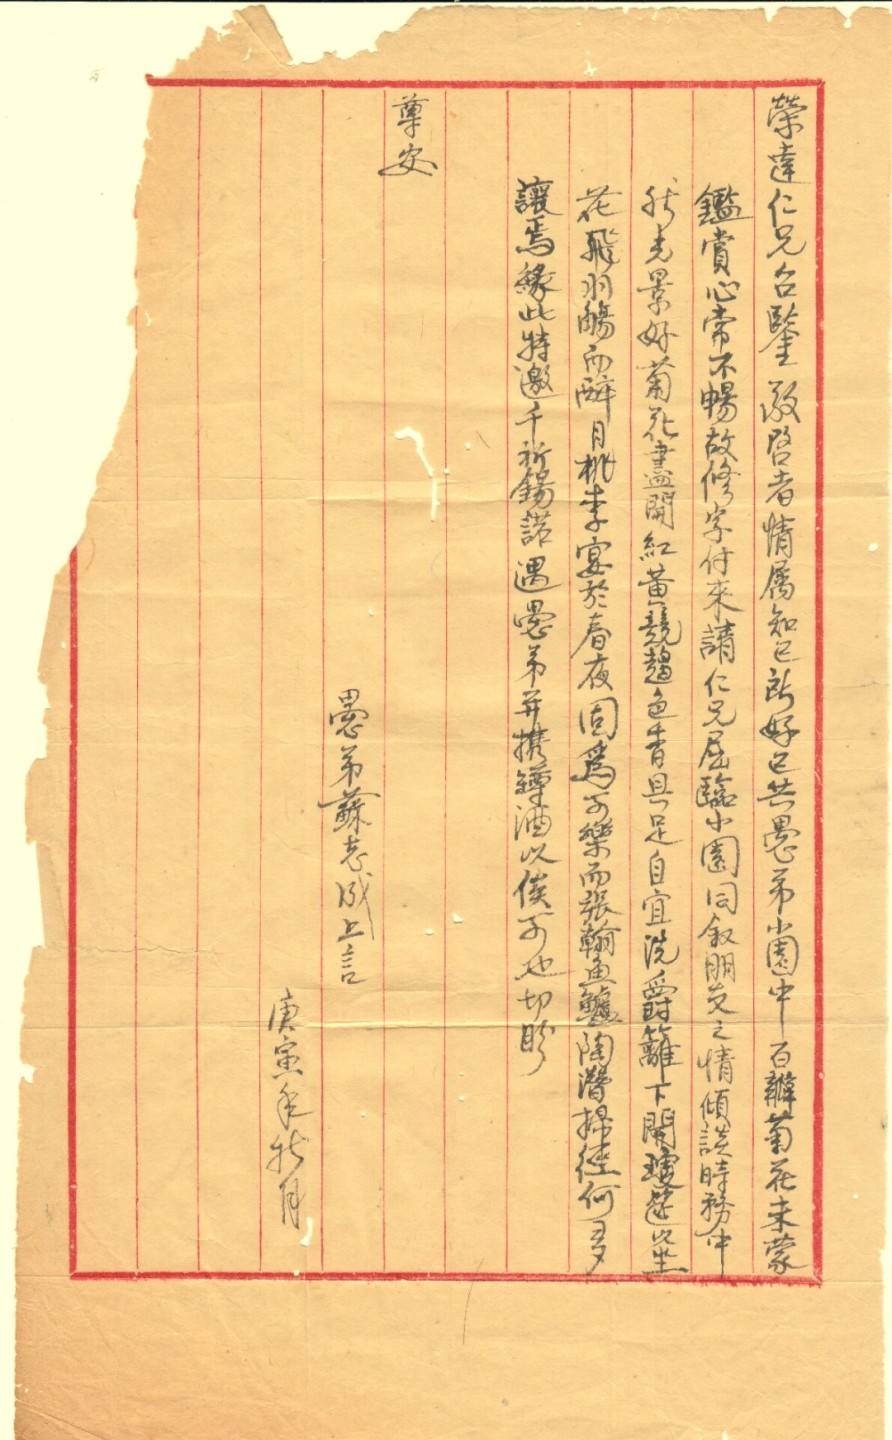 榮達仁兄台鑒 敬啓者情属知己所好已共愚弟小園中百瓣菊花未蒙
鑑賞心常不暢故修字付來請仁兄屈臨小園同叙朋友之情傾談時務中
秋光景好菊花盡開紅黃競趨色香具足自宜洗爵籬下開瓊筵以坐
花飛羽觴而醉月桃李宴於春夜固爲可樂而張翰魚鱸陶潛掃徑何多
讓焉緣此特邀千祈錫諾遇愚弟并携罇酒以俟可也切盼
尊安
愚弟蘇志成上言
庚寅年秋月